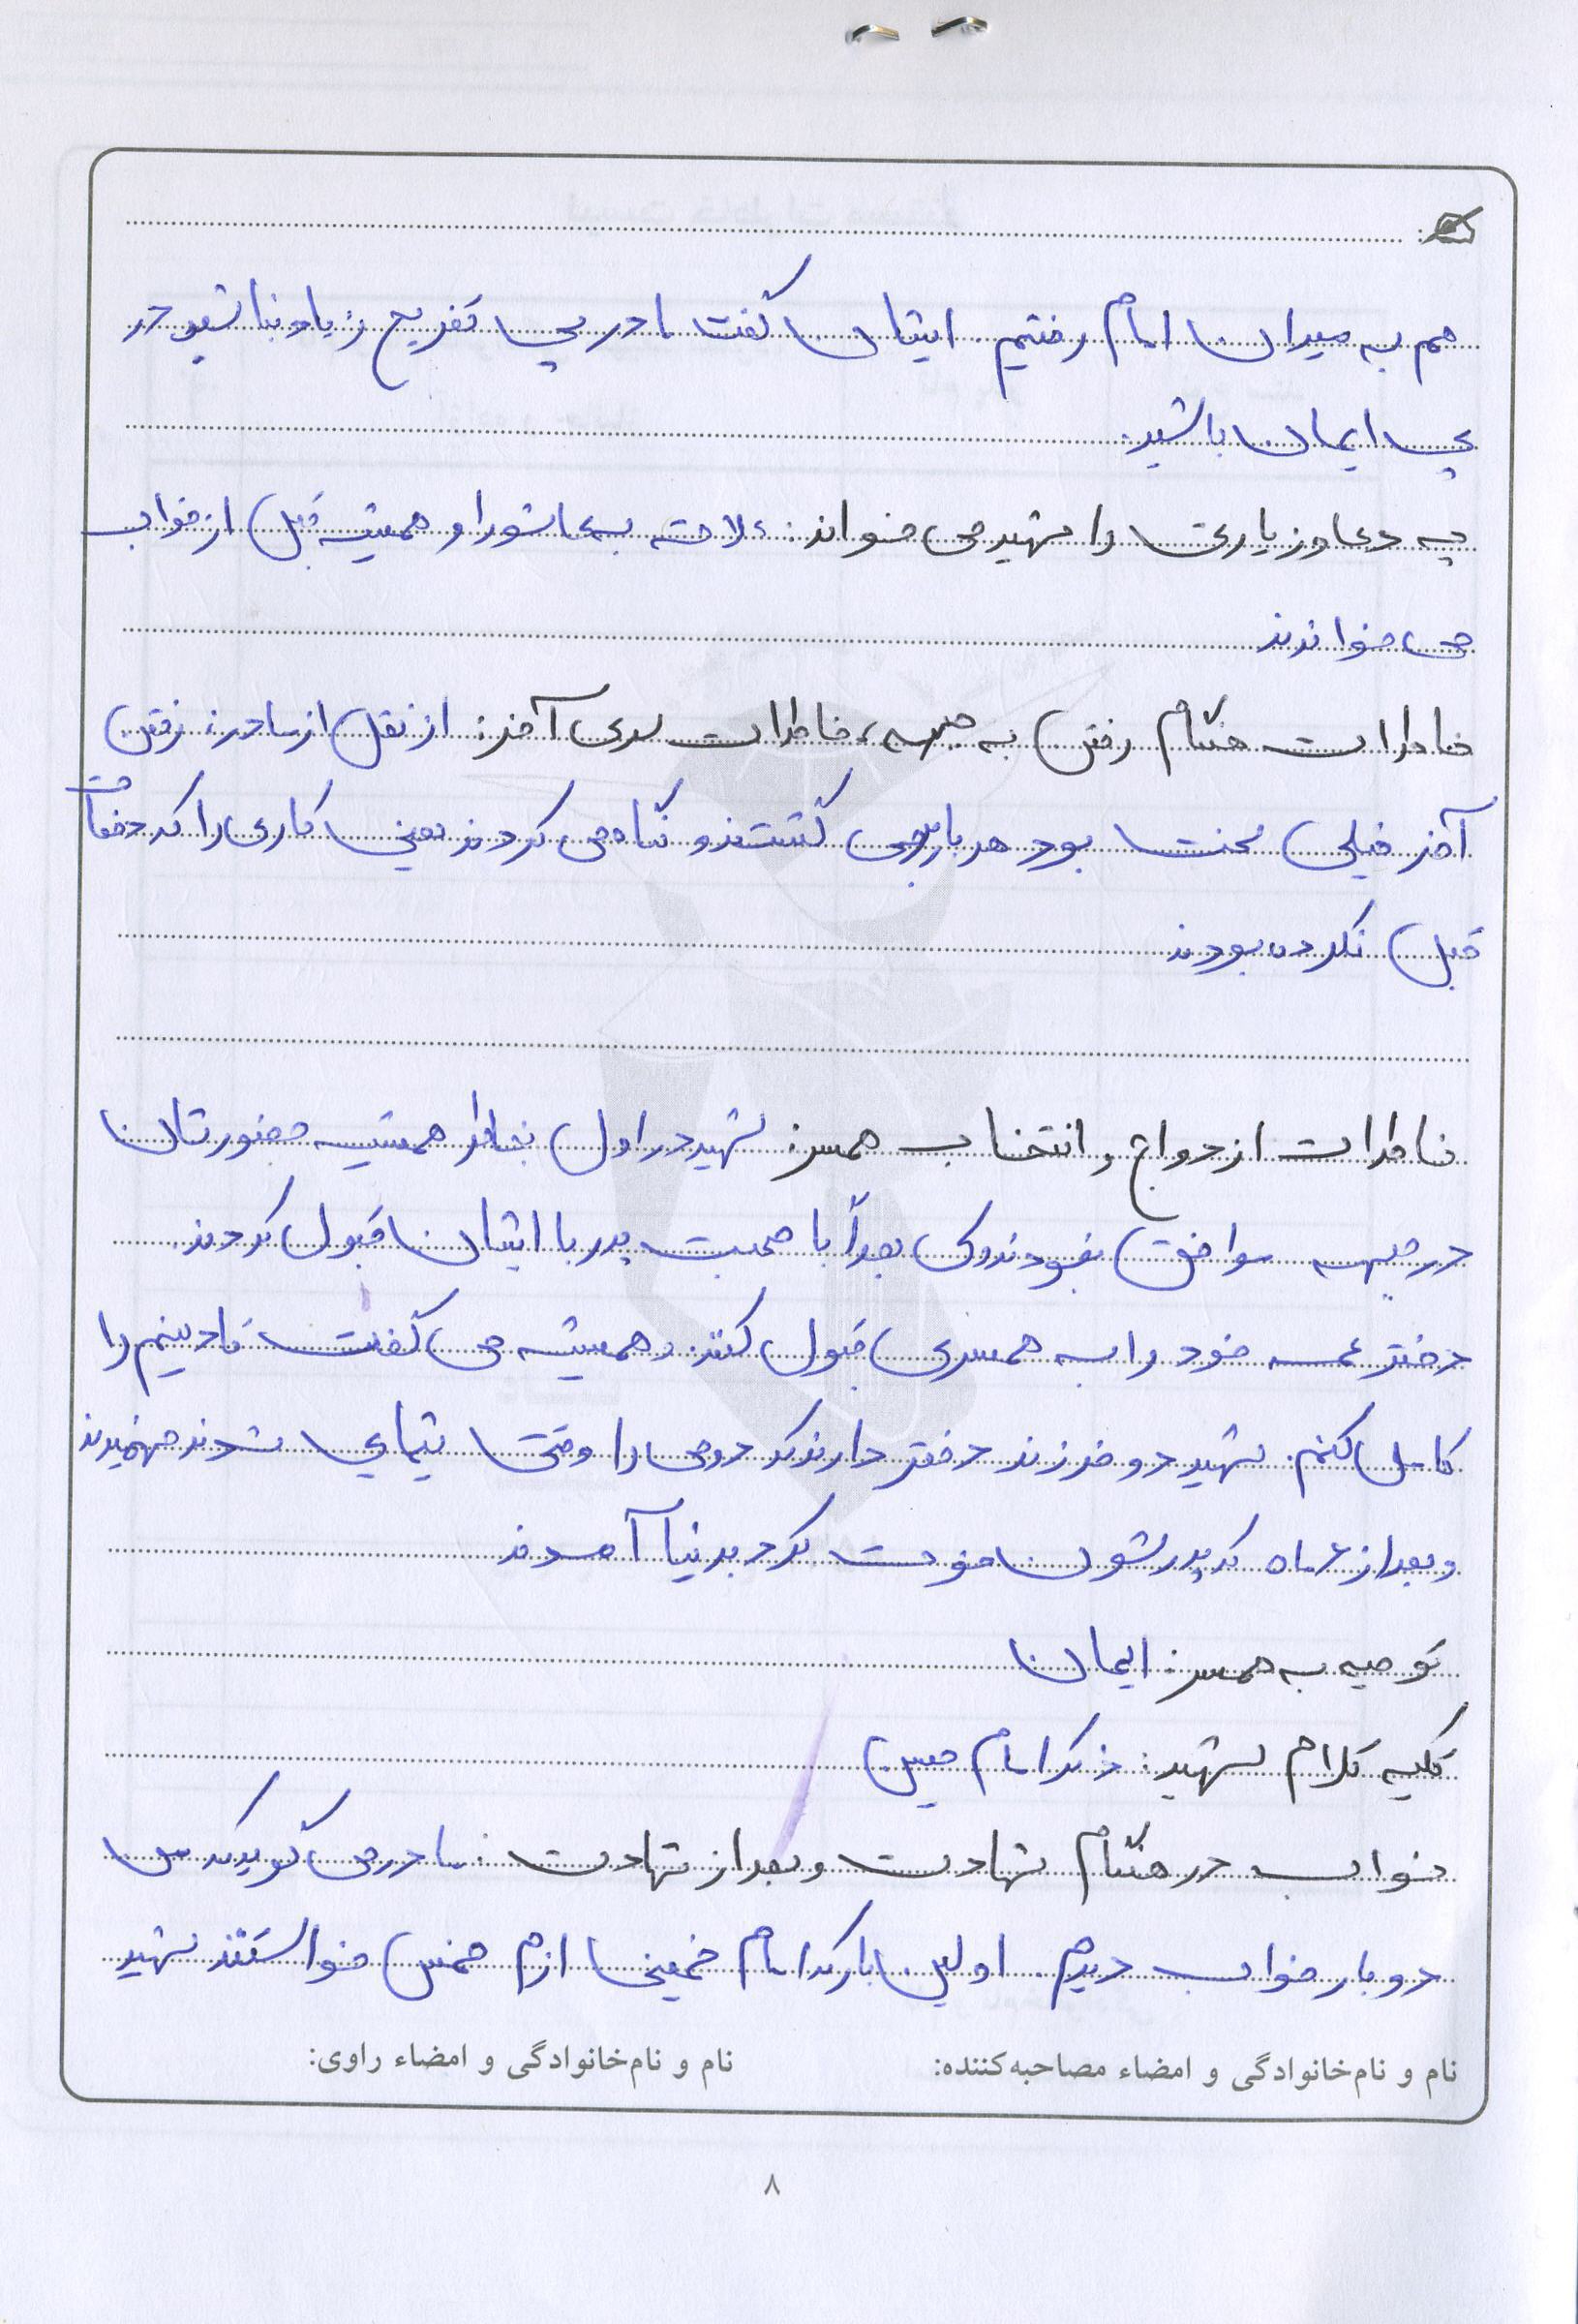 هم به میدان امام رفتیم. ایشان گفت مادر پی تفریح زیاد نباشید در
پی ایمان باشید.
چه دعا و زیارتی را شهید می خواند: علاقه به عاشورا و همیشه قبل از خواب
می خواندند
خاطرات هنگام رفتن به جبهه، خاطرات سری آخر: از نقل از مادر: رفتن
آخر خیلی سخت بود هر بار برمی گشتند و نگاه می کردند یعنی کاری را که دفعات
قبل نکرده بودند
خاطرات ازدواج و انتخاب همسر: شهید در اول بخاطر همیشه حضورشان
در جبهه موافق نبودند ولی بعداً با صحبت پدر با ایشان قبول کردند.
دختر عمه خود را به همسری قبول کنند. و همیشه می گفت تا دینم را
کامل کنم. شهید دو فرزند دختر دارند که دومی را وقتی شهید شدند
و بعد از ۶ ماه که پدرشون فوت کرد بدنیا آمدند
توصیه به همسر: ایمان
تکیه کلام شهید: ذکر امام حسین
خواب در هنگام شهادت و بعد از شهادت: مادر می گوید که من
دو بار خواب دیدم. اولین بار که امام خمینی ازم خمس خواستند شهید
نام و نام‌خانوادگی و امضاء مصاحبه‌کننده: نام و نام‌خانوادگی و امضاء راوی:
۸